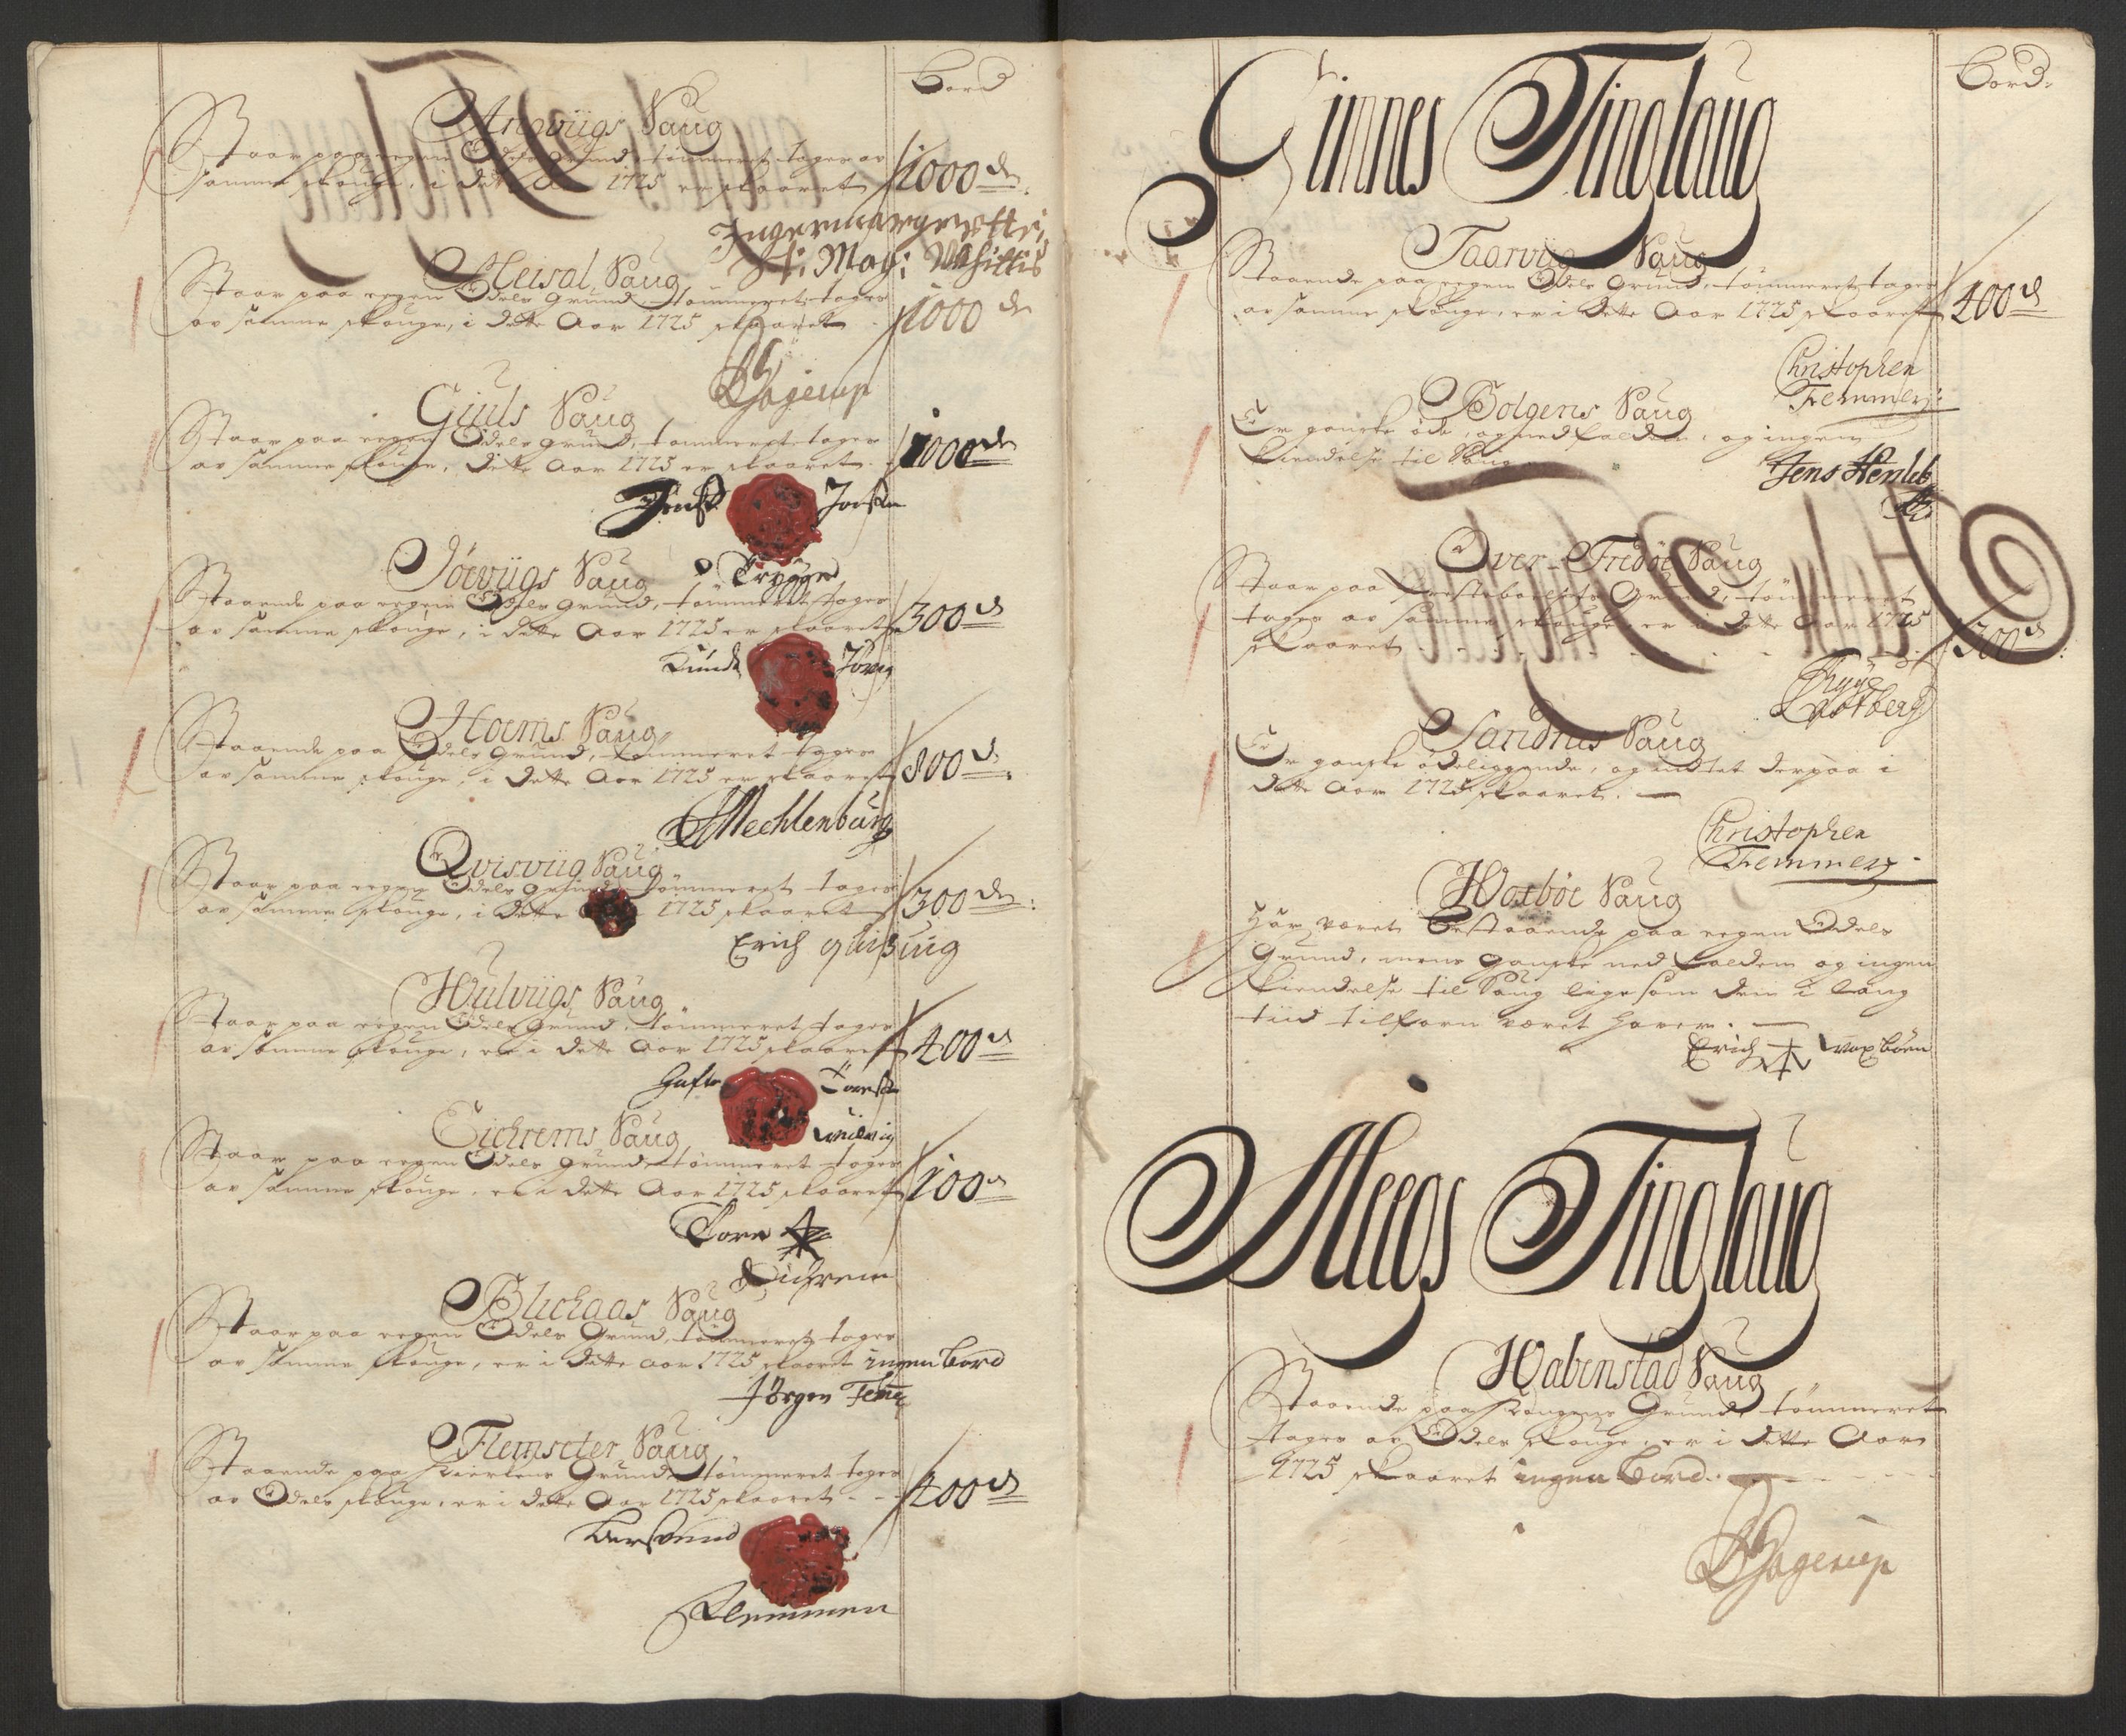 Bord
Angviigs Saug
Staar paa eegen Odels Grund, tømmeret tages av
samme skouge, i dette Aar 1725 er skaaret 1000 de
Meisal Saug
Staar paa eegen Odels Grund, tømmeret tages
av samme skouge, i dette Aar 1725 skaaret 1000 de
DHagerup
Giuls Saug
Staar paa eegen Odels Grund, tømmeret tages
av samme skouge, i dette Aar 1725 er skaaret 1000 de
Jørviigs Saug
Staaende paa eegen Odels Grund, tømmeret tages
av samme skouge, i dette Aar 1725 er skaaret 300 de
Hoems Saug
Staaende paa Odels Grund, tømmeret tages
av samme skouge, i dette Aar 1725 er skaaret 800 de
Mechlenburg
Qvisviig Saug
Staar paa eegen Odels Grund, tømmeret tages
av samme skouge, i dette 1725 skaaret 300 de
Erich
Hulviigs Saug
Staar paa eegen Odels Grund, tømmeret tages
av samme skouge, er i dette Aar 1725 skaaret 400 de
Eichrems Saug
Staar paa eegen Odels Grund, tømmeret tages
av samme skouge, er i dette Aar 1725 skaaret 100 de
Tore
Eichrem
Blichaas Saug
Staar paa eegen Odels Grund, tømmeret tages
av samme skouge, er i dette Aar 1725 skaaret ingen bord
Jørgen
Flemseter Saug
Staaende paa Kierkens Grund, tømmeret tages
av Odels skouge, er i dette Aar 1725 skaaret - - 400 de
Flemmen
Bord.
Gimnes Tinglaug
Taarviig Saug
Staaende paa eegen Odels Grund, tømmeret tages
av samme skouge, er i dette Aar 1725 skaaret 400 de
Christopher
Femmer:
Bolgens Saug
Er ganske øde, og nedfalden, og ingen
kiendelse til Saug
Jens
Over-Fredøe Saug
Staar paa Præstebolets Grund, tømmeret
tages av samme skouge, er i dette Aar 1725
skaaret 300 de
Sandnis Saug
Er ganske ødeliggende, og intet derpaa i
dette Aar 1725 skaaret.
Christopher
Femmer:
Woxbøe Saug
Har været bestaaende paa eegen Odels
Grund, mens ganske nedfalden og ingen
kiendelse til Saug lige som den i lang
tiid tilforn været haver.
Erich Woxbøen
Meegs Tinglaug
Habenstad Saug
Staaende paa Kongens Grund, tømmeret
tages av Odels skouge, er i dette Aar
1725 skaaret ingen bord.
DHagerup